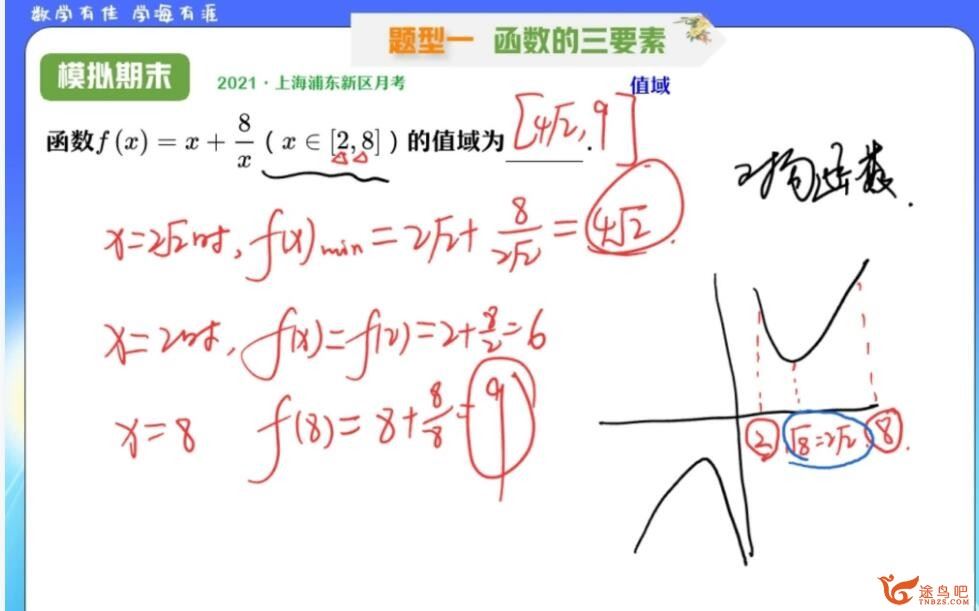 数学有佳 学海有涯
题型一 函数的三要素
模拟期末
2021·上海浦东新区月考
值域
函数f(x)=x+8/x(x∈[2,8])的值域为____.
[4√2,9]
对勾函数.
x=2√2时,f(x)min=2√2+8/2√2=4√2.
x=2时,f(x)=f(2)=2+8/2=6
x=8 f(8)=8+8/8=9
2 √8=2√2 8.
途鸟吧
TNBZS.COM